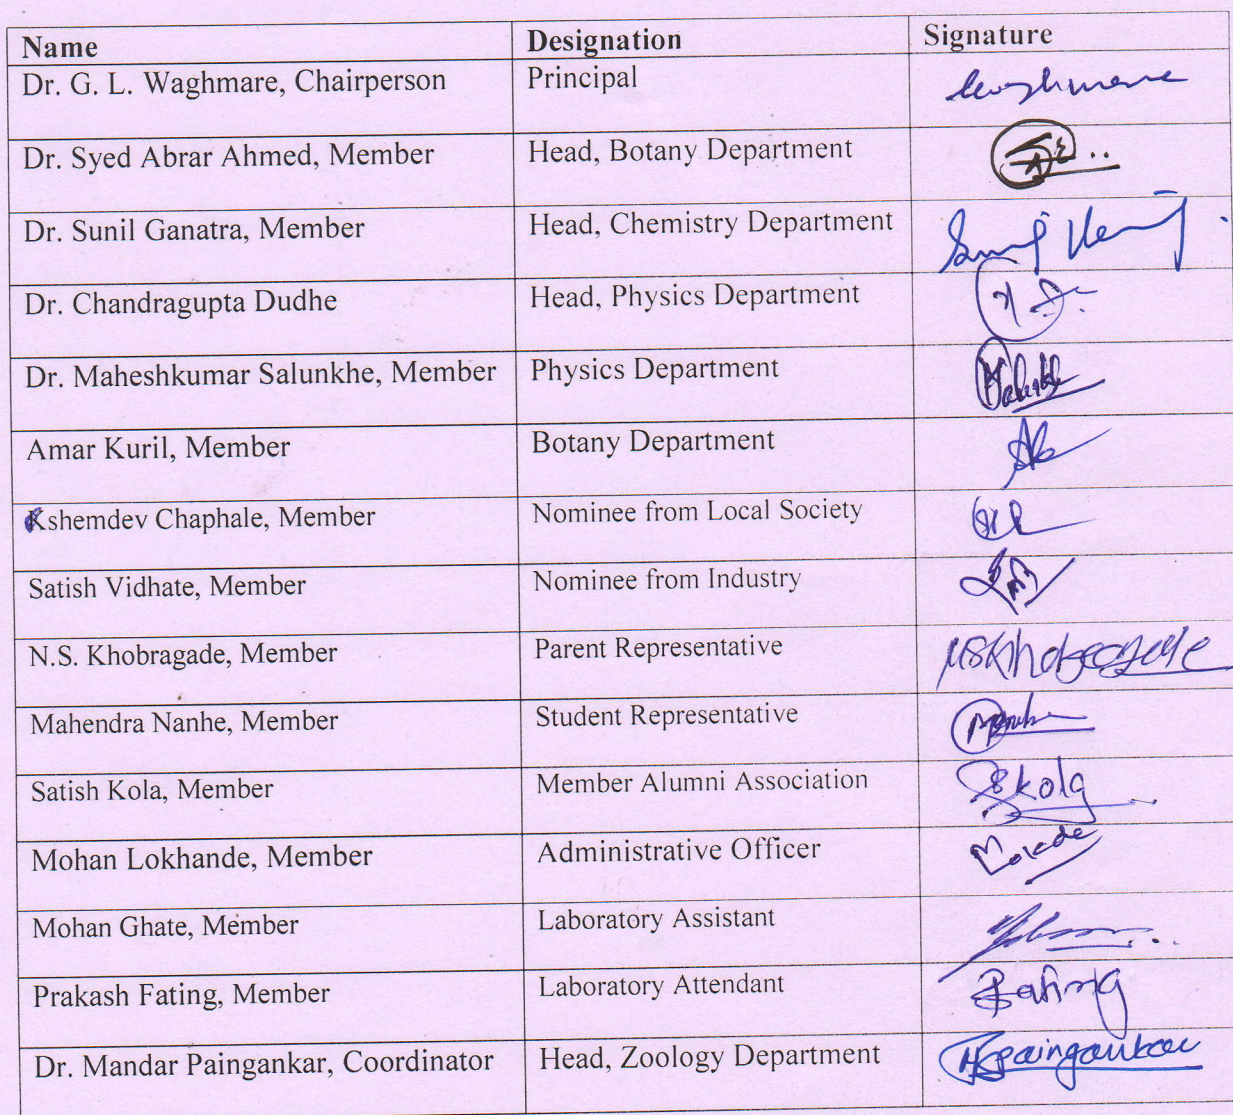 Name Designation Signature
Dr. G. L. Waghmare, Chairperson Principal Waghmare
Dr. Syed Abrar Ahmed, Member Head, Botany Department
Dr. Sunil Ganatra, Member Head, Chemistry Department
Dr. Chandragupta Dudhe Head, Physics Department
Dr. Maheshkumar Salunkhe, Member Physics Department
Amar Kuril, Member Botany Department
Kshemdev Chaphale, Member Nominee from Local Society
Satish Vidhate, Member Nominee from Industry
N.S. Khobragade, Member Parent Representative NSKhobragade
Mahendra Nanhe, Member Student Representative
Satish Kola, Member Member Alumni Association SSKola
Mohan Lokhande, Member Administrative Officer
Mohan Ghate, Member Laboratory Assistant
Prakash Fating, Member Laboratory Attendant Fating
Dr. Mandar Paingankar, Coordinator Head, Zoology Department Paingankar